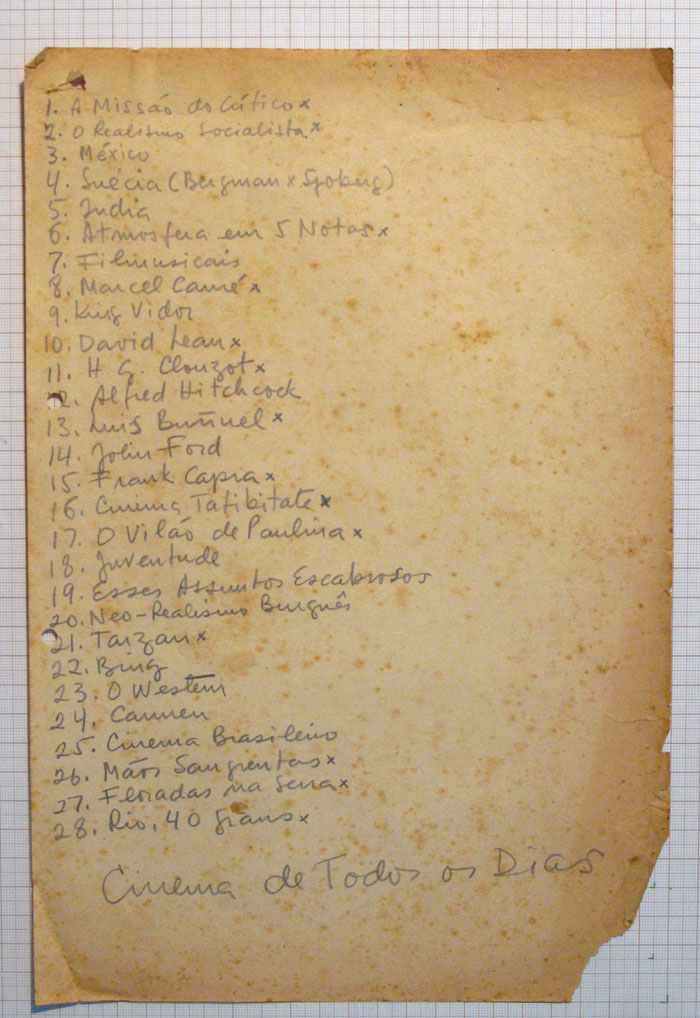 1. A Missão do Crítico x
2. O Realismo Socialista x
3. México
4. Suécia (Bergman x Sjoberg)
5. India
6. Atmosfera em 5 Notas x
7. Filmusicais
8. Marcel Carné x
9. King Vidor
10. David Lean x
11. H G. Clouzot x
12. Alfred Hitchcock
13. Luis Buñuel x
14. John Ford
15. Frank Capra x
16. Cinema Tatibitate x
17. O Vilão de Paulina x
18. Juventude
19. Esses Assuntos Escabrosos
20. Neo-Realismo Burguês
21. Tarzan x
22. Bing
23. O Western
24. Carmen
25. Cinema Brasileiro
26. Mãos Sangrentas x
27. Floradas na Serra x
28. Rio, 40 graus x
Cinema de Todos os Dias